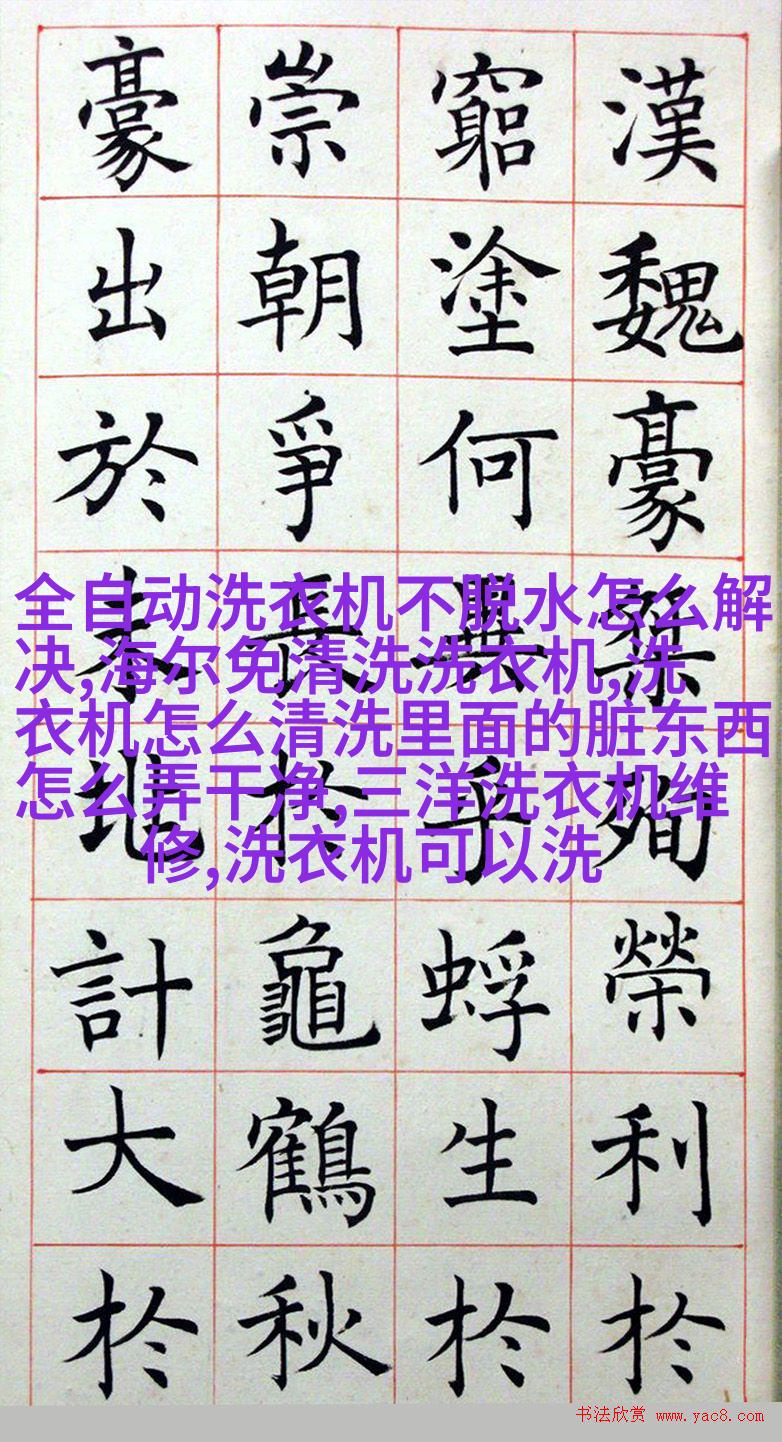 漢魏豪桀殉榮利於
窮塗何異乎蜉生於
崇朝爭長於龜鶴秋
豪出於未計大於
全自动洗衣机不脱水怎么解
决,海尔免清洗洗衣机,洗
衣机怎么清洗里面的脏东西
怎么弄干净,三洋洗衣机维
修,洗衣机可以洗
书法欣赏 www.yac8.com